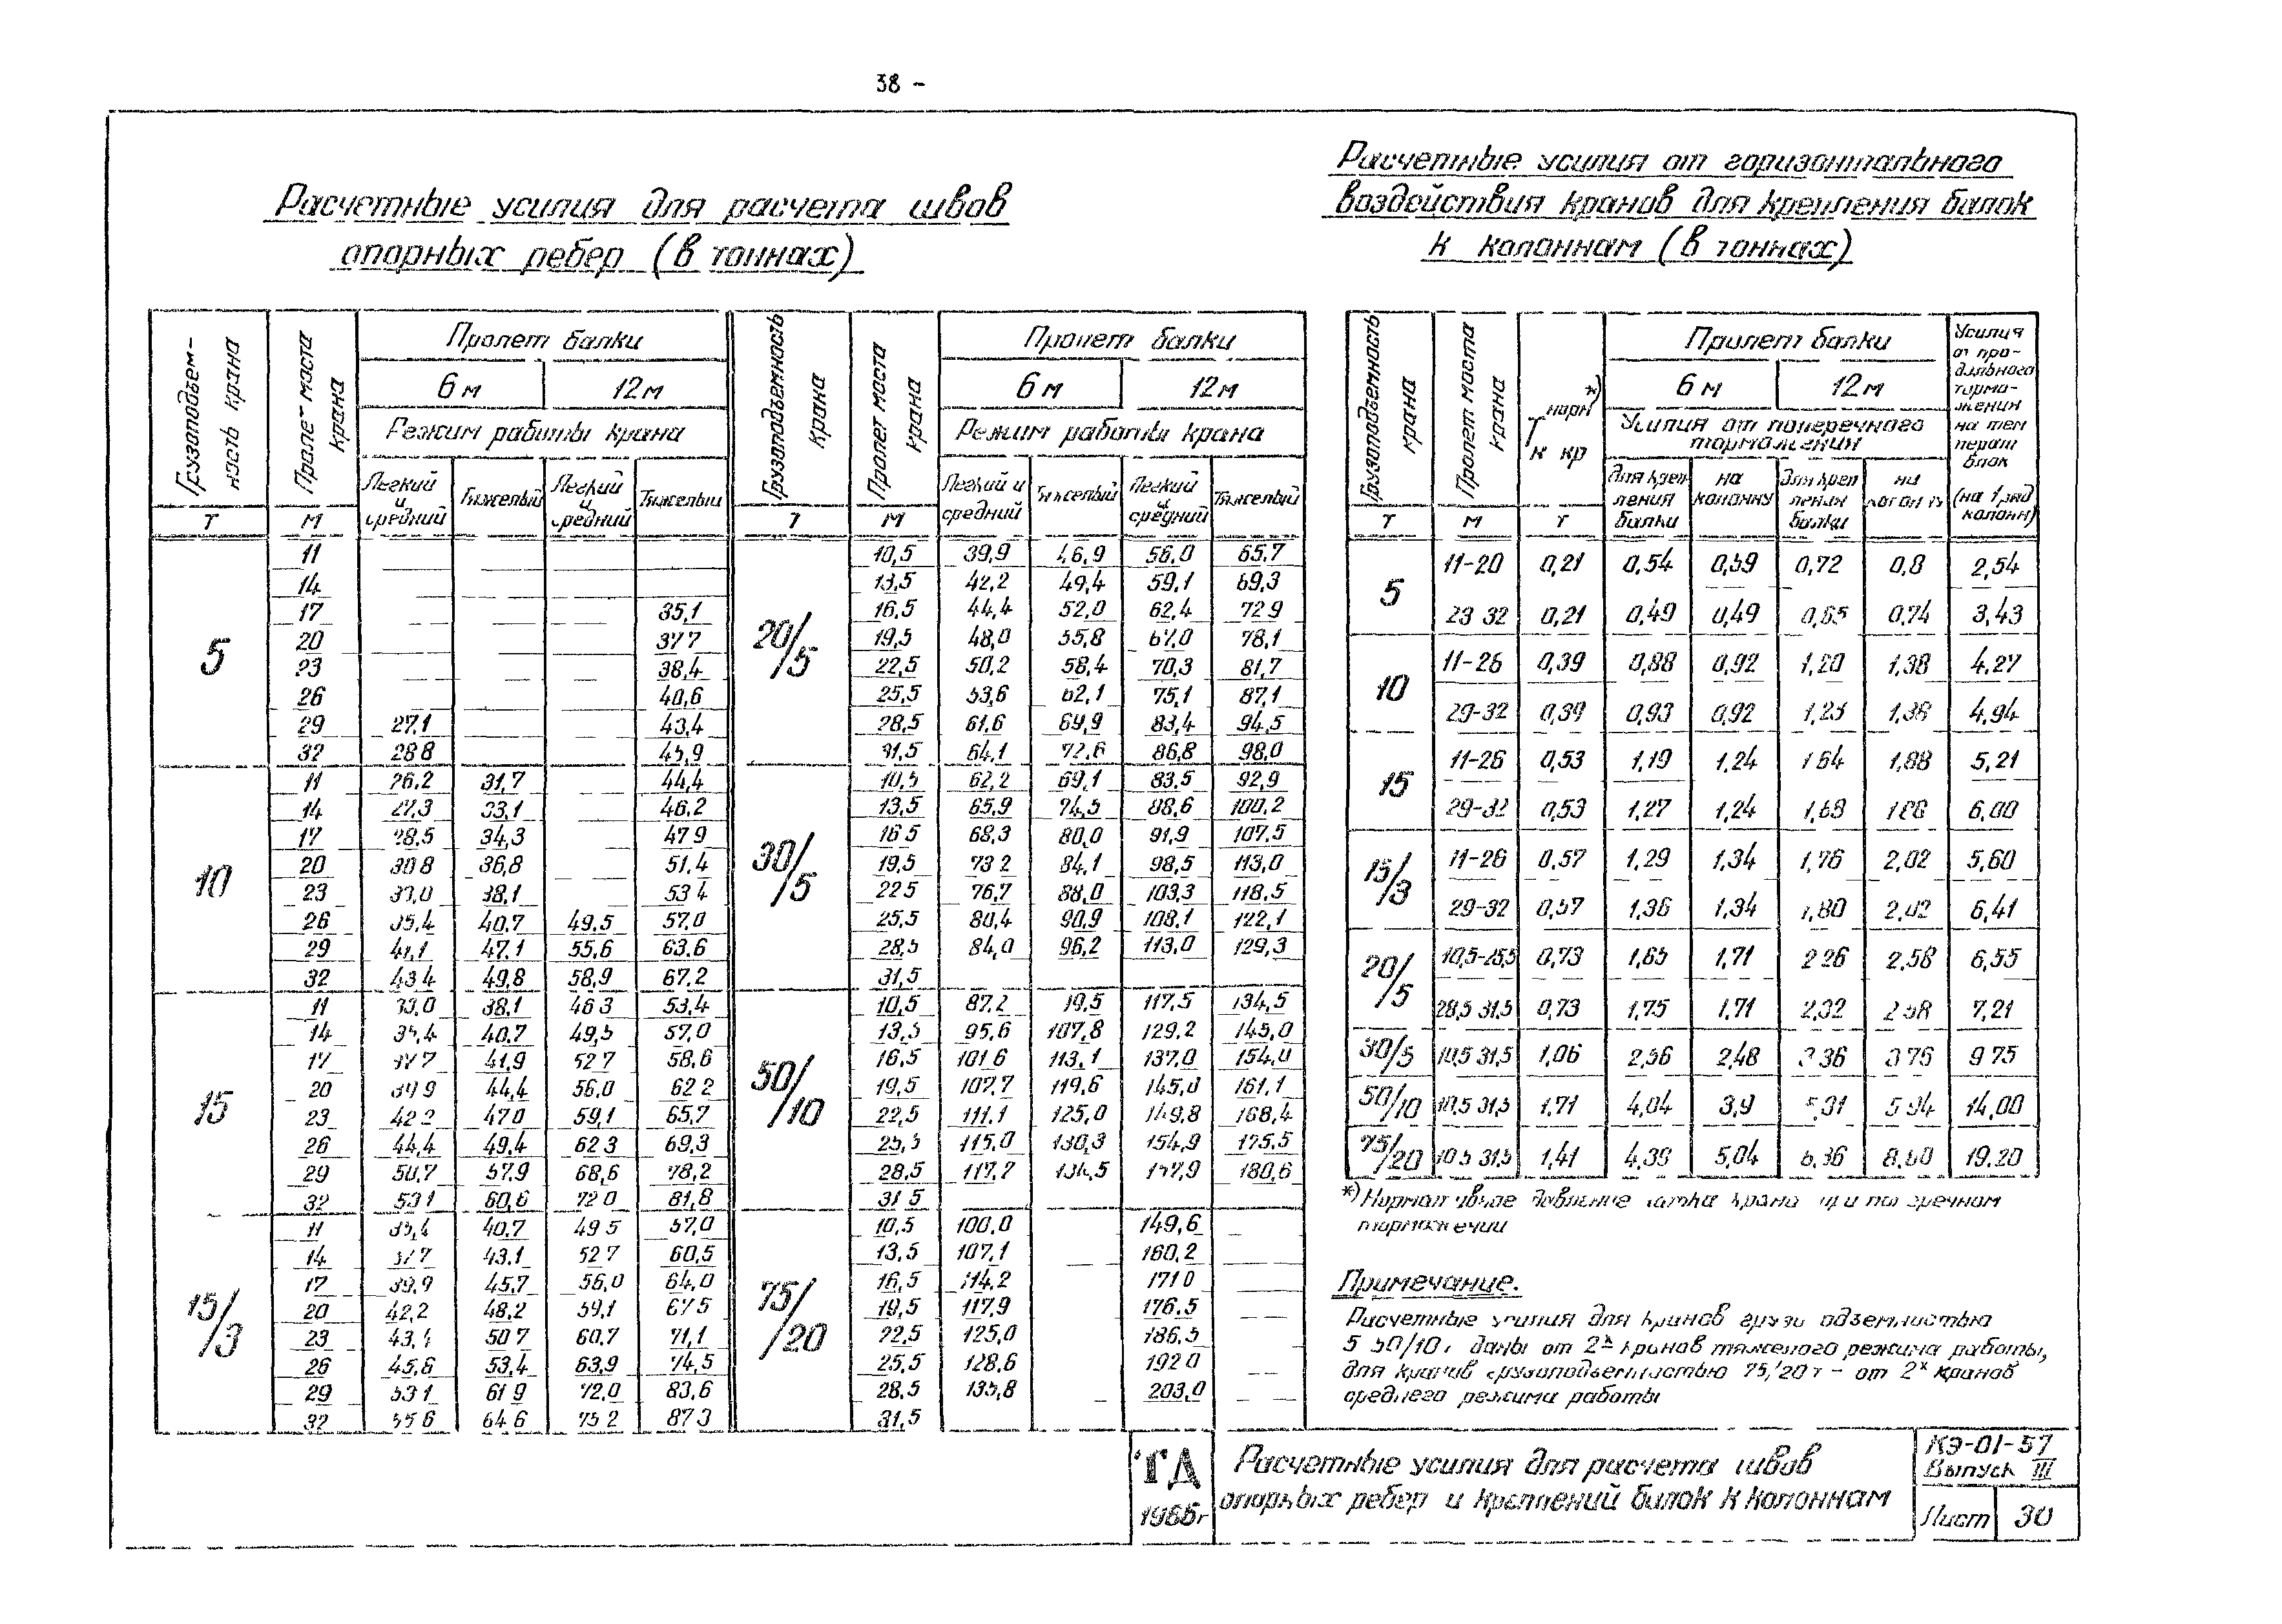 38 -
Расчетные усилия для расчета швов
опорных ребер (в тоннах)
Расчетные усилия от горизонтального
воздействия кранов для крепления балок
к колоннам (в тоннах)
Грузоподъем-
ность крана
Пролет моста
крана
Пролет балки
6 м 12 м
Режим работы крана
Легкий и средний Тяжелый Легкий и средний Тяжелый
Т М
5
11
14
17 35,1
20 37 7
23 38,4
26 40,6
29 27,1 43,4
32 28 8 45,9
10
11 26,2 31,7 44,4
14 27,3 33,1 46,2
17 28,5 34,3 47 9
20 30 8 36,8 51,4
23 33,0 38,1 53 4
26 35,4 40,7 49,5 57,0
29 41,1 47,1 55,6 63,6
32 43 4 49,8 58,9 67,2
15
11 33,0 38,1 46 3 53,4
14 35,4 40,7 49,5 57,0
17 37 7 41,9 52 7 58,6
20 39 9 44,4 56,0 62 2
23 42 2 47 0 59,1 65,7
26 44,4 49,4 62 3 69,3
29 50,7 57,9 68,6 78,2
32 53 1 60,6 72 0 81,8
15/3
11 35,4 40,7 49 5 57,0
14 37 7 43,1 52 7 60,5
17 39,9 45,7 56,0 64,0
20 42,2 48,2 59,1 67 5
23 43,4 50 7 60,7 71,1
26 45,8 53,4 63,9 74,5
29 53 1 61 9 72,0 83,6
32 55 6 64 6 75 2 87 3
Грузоподъемность
крана
Пролет моста
крана
Пролет балки
6 м 12 м
Режим работы крана
Легкий и средний Тяжелый Легкий и средний Тяжелый
Т М
20/5
10,5 39,9 46,9 56,0 65,7
13,5 42,2 49,4 59,1 69,3
16,5 44,4 52,0 62,4 72 9
19,5 48,0 55,8 67,0 78,1
22,5 50,2 58,4 70,3 81,7
25,5 53,6 62,1 75,1 87,1
28,5 61,6 69,9 83,4 94,5
31,5 64,1 72,6 86,8 98,0
30/5
10,5 62,2 69,1 83,5 92,9
13,5 65,9 74,5 88,6 100,2
16 5 68,3 80,0 91,9 107,5
19,5 73 2 84,1 98,5 113,0
22 5 76,7 88,0 103,3 118,5
25,5 80,4 90,9 108,1 122,1
28,5 84,0 96,2 113,0 129,3
31,5
50/10
10,5 87,2 117,5 134,5
13,5 95,6 107,8 129,2 145,0
16,5 101 6 113,1 137,0 154,0
19,5 107,7 119,6 145,0 161,1
22,5 111,1 125,0 149,8 168,4
25,5 115,0 130,3 154,9 175,5
28,5 117,7 157,9 180,6
31 5
75/20
10,5 100,0 149,6
13,5 107,1 160,2
16,5 114,2 171 0
19,5 117,9 176,5
22,5 125,0 186,5
25,5 128,6 192 0
28,5 135,8 203,0
31,5
Грузоподъемность
крана
Пролет моста
крана
Т норм к кр *)
Пролет балки
6 м 12 м
Усилия от поперечного
торможения
Для креп ления балки на колонну Для креп ления балки на
Усилия от про- дольного тормо- жения на тем перат блок (на 1 ряд колонн)
Т М Т
5
11-20 0,21 0,54 0,59 0,72 0,8 2,54
23 32 0,21 0,49 0,49 0,65 0,74 3,43
10
11-26 0,39 0,88 0,92 1,20 1,38 4,27
29-32 0,39 0,93 0,92 1,23 1,38 4,94
15
11-26 0,53 1,19 1,24 1 64 1,88 5,21
29-32 0,53 1,27 1,24 1,68 1 88 6,00
15/3
11-26 0,57 1,29 1,34 1,76 2,02 5,60
29-32 0,57 1,36 1,34 1,80 2,02 6,41
20/5
10,5-25,5 0,73 1,65 1,71 2 26 2,58 6,55
28,5 31,5 0,73 1,75 1,71 2,32 2 58 7,21
30/5 10,5 31,5 1,06 2,56 2,48 3 36 3 76 9 75
50/10 10,5 31,5 1,71 4,04 3,9 5,31 5 94 14,00
75/20 10 5 31,5 1,41 4,39 5,04 19,20
*) Нормативное давление катка крана при поперечном
торможении
Примечание.
Расчетные усилия для кранов грузоподъемностью
5 50/10 т даны от 2х кранов тяжелого режима работы,
для кранов грузоподъемностью 75/20 т - от 2х кранов
среднего режима работы
ТД
1966г
Расчетные усилия для расчета швов
опорных ребер и креплений балок к колоннам
КЭ-01-57
Выпуск III
Лист 30